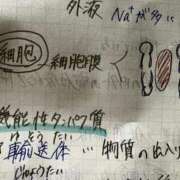 外液 Na⁺が多い
細胞 細胞膜
機能性タンパク質
ゆそうたい
輸送体 い 物質の出入り